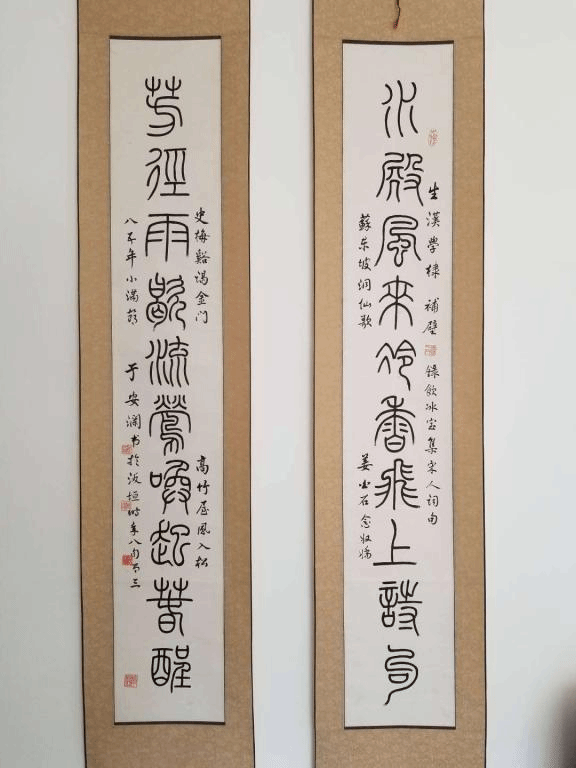 水殿風來冷香飛上詩句
生漢學棣補壁 錄飲冰室集宋人詞句
蘇东坡洞仙歌
姜白石念奴嬌
芳徑雨歇流鶯喚起春酲
史梅谿謁金门
高竹屋風入松
八五年小滿節
于安瀾书於汳垣時年八旬三